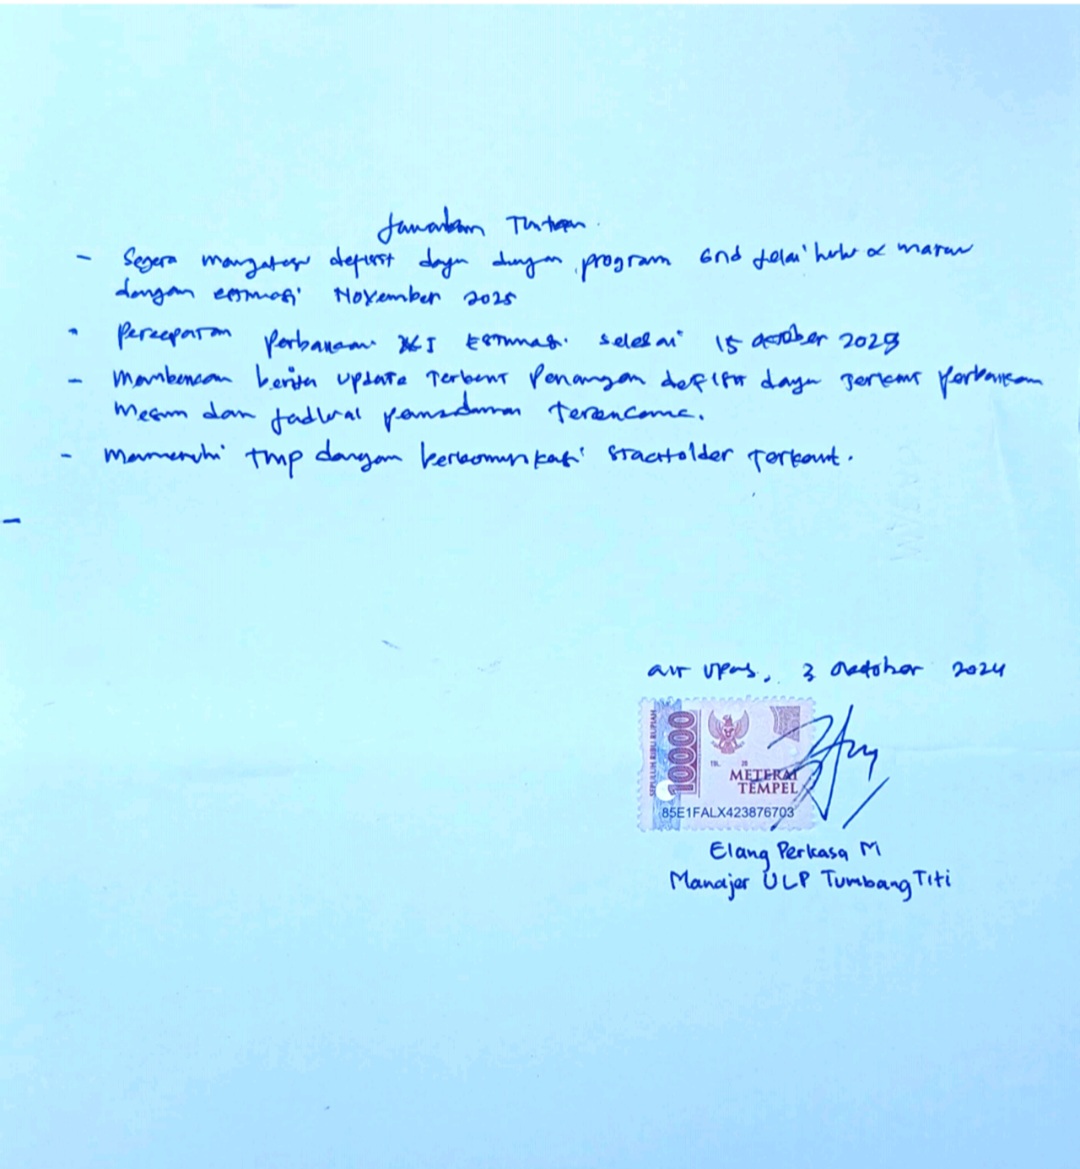 Jawaban Tuntutan.
- Segera mengatasi defisit daya dengan program Grid Jelai hulu & marau
dengan estimasi November 2025
- Percepatan Perbaikan estimasi selesai 15 oktober 2025
- Memberikan berita update terkait Penangan defisit daya terkait perbaikan
Mesin dan jadwal pemadaman Terencana.
- Memenuhi TMP dengan berkomunikasi stackholder terkait.
-
air upas, 3 Oktober 2024
SEPULUH RIBU RUPIAH
10000
TGL. 20
METERAI
TEMPEL
85E1FALX423876703
Elang Perkasa M
Manajer ULP Tumbang Titi